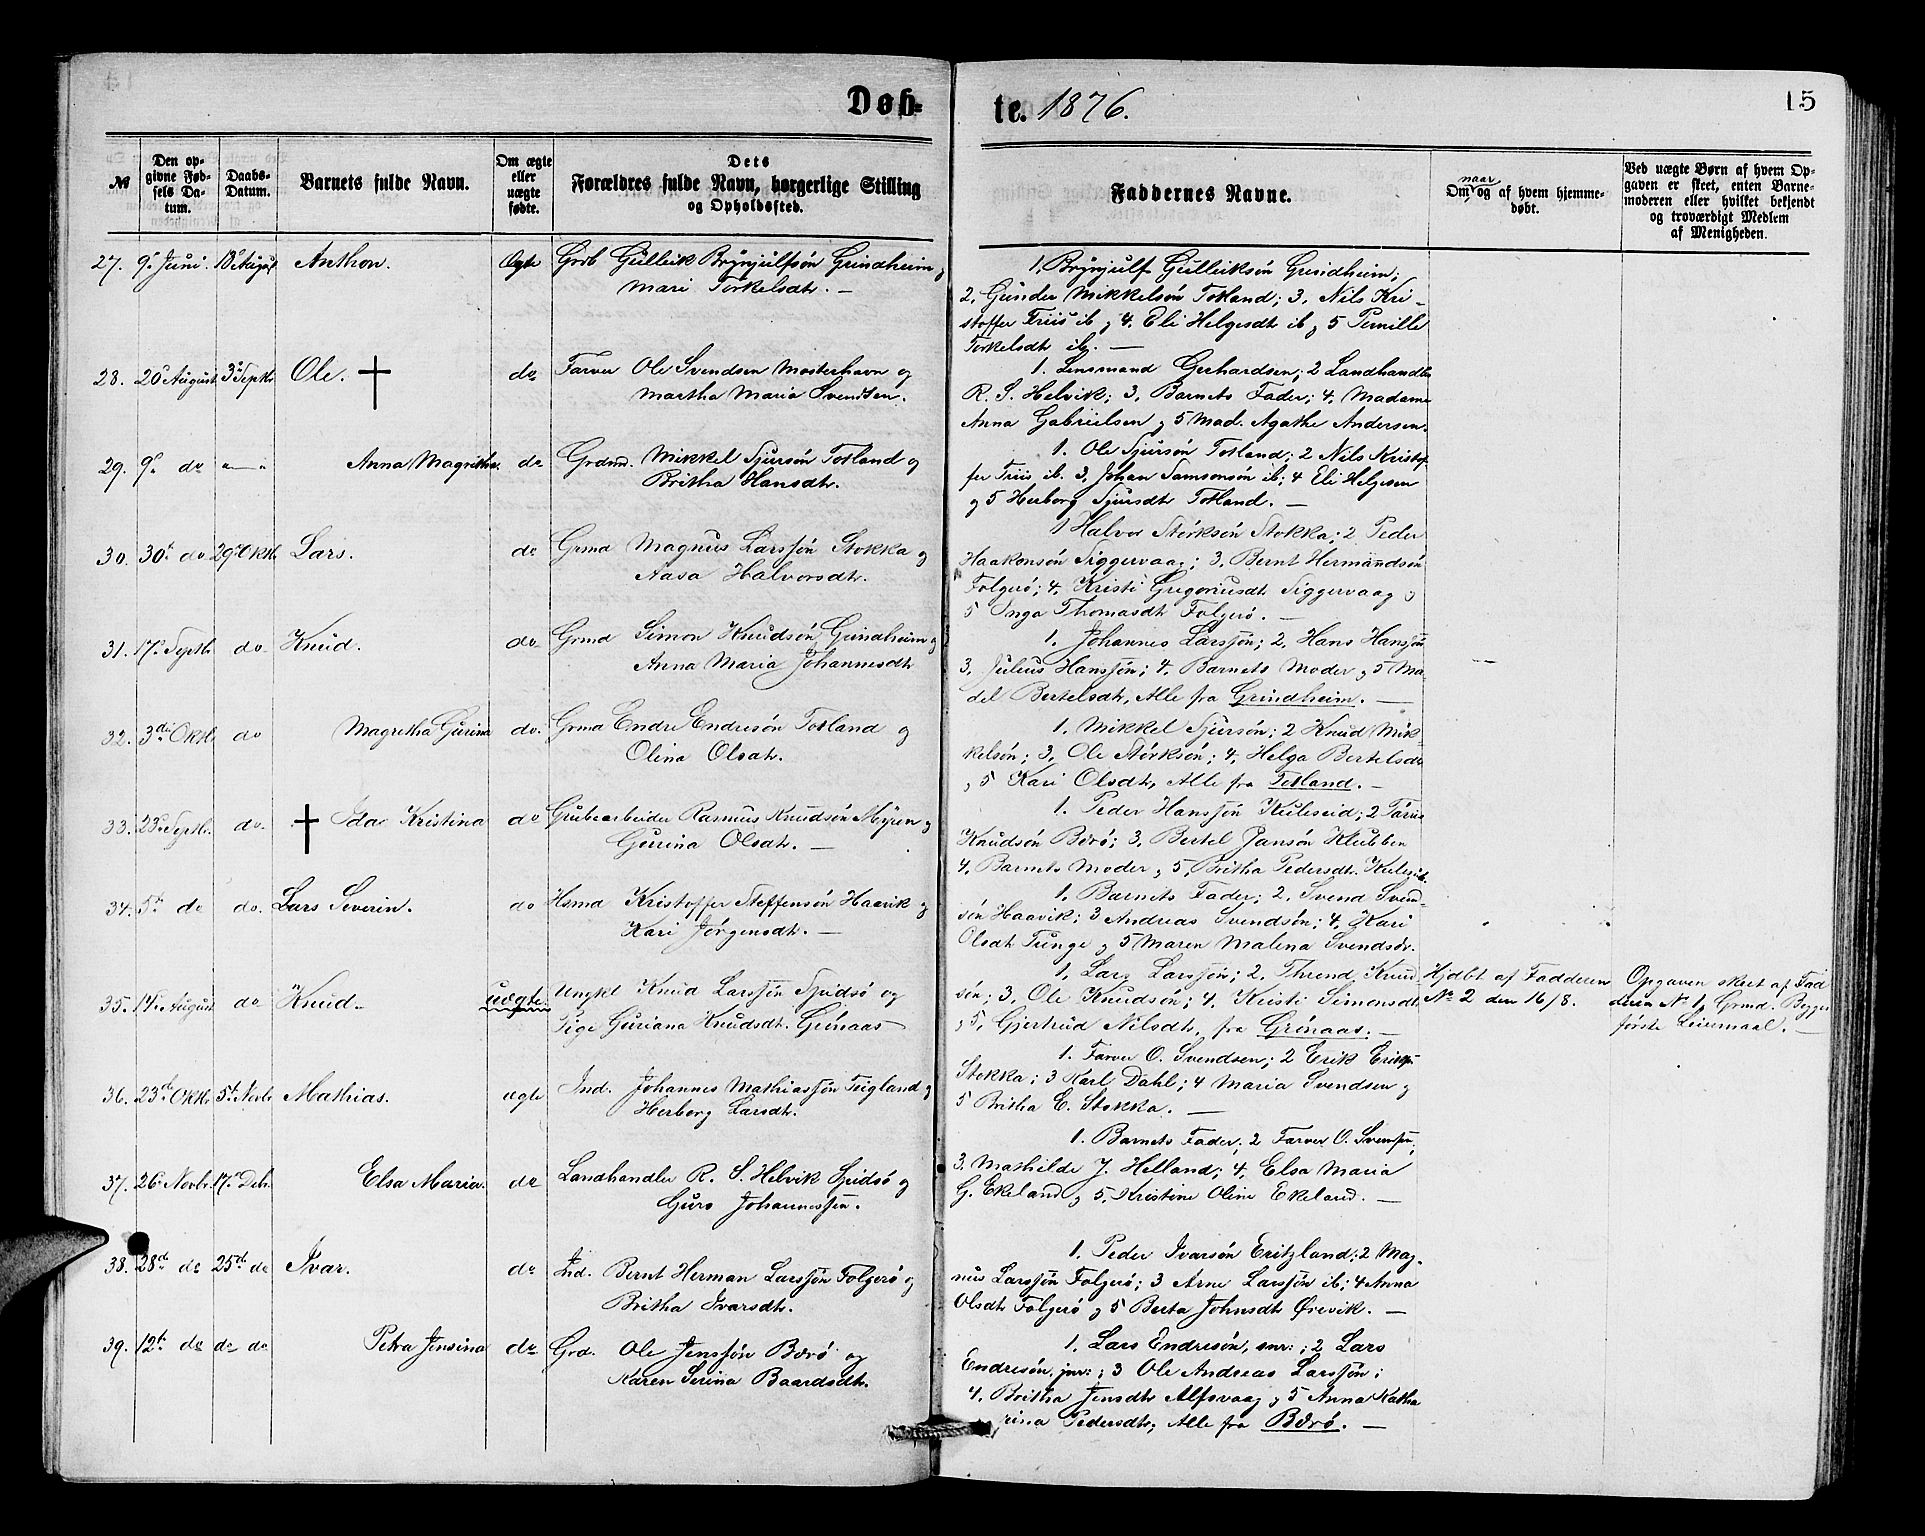 Døb-
te. 1876.
15
№
Den op-
givne Fød-
sels Da-
tum.
Daabs-
Datum.
Barnets fulde Navn.
Om ægte
eller
uægte
fødte.
Dets
Forældres fulde Navn, borgerlige Stilling
og Opholdssted.
Faddernes Navne.
naar
Om og af hvem hjemme-
døbt.
Ved uægte Børn af hvem Op-
gaven er skeet, enten Barne-
moderen eller hvilket bekjendt
og troværdigt Medlem
af Menigheden.
27. 9de Juni. 18de August Anthon. Ægte Grdb Gulleik Brynjulfsön Grindheim og
Mari Torkelsdtr. —
1, Brynjulf Gulleiksön Grindheim;
2, Gunder Mikkelsön Totland; 3, Nils Kri-
stoffer Friis ib og 4. Eli Helgesdtr ib og 5 Pernille
Torkelsdtr ib. —
28. 20de August 3die Septbr Ole. † do Farver Ole Svendsen Mosterhavn og
Martha Maria Svendsen.
1. Lensmand Gerhardsen; 2 Landhandler
R. S. Helvik; 3, Barnets Fader; 4, Madame
Anna Gabrielsen og 5 Mad. Agathe Andersen.
29. 9de do " — " Anna Magritha. do Grdmd. Mikkel Sjursön Totland og
Britha Hansdtr.
1. Ole Sjursön Totland; 2 Nils Kristof-
fer Friis ib. 3, Johan Samsonsön ib; 4 Eli Helgesen
og 5 Herborg Sjursdtr Totland. —
30. 30te do 29de Oktbr Lars. do Grmd Magnus Larssön Stokka og
Aasa Halvorsdtr.
1 Halvor Störksön Stokka; 2 Peder
Haakonsön Siggervaag; 3, Bernt Hermandsön
Folgerö; 4, Kristi Gregoriusdtr Siggervaag og
5 Inga Thomasdtr Folgerö. —
31. 17de Septbr. do. Knud. do. Grmd Simon Knudsön Grindheim og
Anna Maria Johannesdtr
1. Johannes Larssön; 2, Hans Hanssön
3, Julius Hanssön; 4, Barnets Moder og 5 Ma-
del Bertelsdtr, Alle fra Grindheim. —
—
32. 3die Oktbr do Magretha Gurina do. Grmd Endre Endresön Totland og
Olina Olsdtr.
1, Mikkel Sjursön; 2 Knud Mik-
kelsön; 3, Ole Störksön; 4, Helga Bertelsdtr
og 5 Kari Olsdtr, Alle fra Totland. —
33. 23de Septbr. do. † Ida Kristina do Grubearbeider Rasmus Knudsön Myren og
Gurina Olsdtr. —
1. Peder Hanssön Kuleseid; 2
Knudsön Börö; 3, Bertel Jansön Klubben
4, Barnets Moder og 5, Britha Pedersdtr. Kuleseid.
34. 5te do do. Lars Severin. do Hsmd Kristoffer Steffensön Haavik og
Kari Jörgensdtr. —
1, Barnets Fader; 2, Svend Svend-
sön Haavik; 3 Andreas Svendsön; 4, Kari
Olsdtr Tunge og 5 Maren Malena Svendsdr.
35. 14de August do Knud. uægte Ungkl Knud Larssön Spidsö og
Pige Guriana Knudsdtr. Grönaas —
1, Lars Larssön; 2, Thrond Knud-
sön; 3, Ole Knudsön; 4, Kristi Simonsdtr
og 5, Gjertrud Nilsdtr, fra Grönaas. —
Hjdbt af Fadderen
№ 2 den 16/8.
Opgaven skeet af Fad
deren № 1, Grmd. Begges
første Leiermaal. —
36. 23de Oktbr 5te Novbr Mathias. ægte Ind. Johannes Mathiassön Teigland og
Herborg Larsdtr.
1. Farver O. Svendsen; 2 Erik Erikss.
Stokka; 3 Karl Dahl; 4 Maria Svendsen og
5 Britha E. Stokka. —
37. 26de Novbr. 17de Debr. Elsa Maria. do Landhandler R. S. Helvik Spidsö og
Guro Johannessen.
1. Barnets Fader; 2 Farver O. Svensen;
3. Mathilde J. Helland; 4, Elsa Maria
G. Ekeland og 5, Kristine Oline Ekeland. —
38. 28de do 25de do Ivar. do Ind. Bernt Herman Larssön Folgerö og
Britha Ivarsdtr.
1, Peder Ivarsön Eritzland; 2 Mag-
nus Larssön Folgerö; 3 Arne Larssön ib; 4 Anna
Olsdtr Folgerö og 5 Berta Johnsdtr Örevik. —
39. 12te do do do Petra Jensina do Grd. Ole Jenssön Börö og
Karen Serina Baardsdtr.
1, Lars Endresön, snr:; 2 Lars
Endresön, jnr:; 3 Ole Andreas Larssön;
4, Britha Jensdtr Alfsvaag og 5 Anna Katha
rina Pedersdtr, Alle fra Börö. —